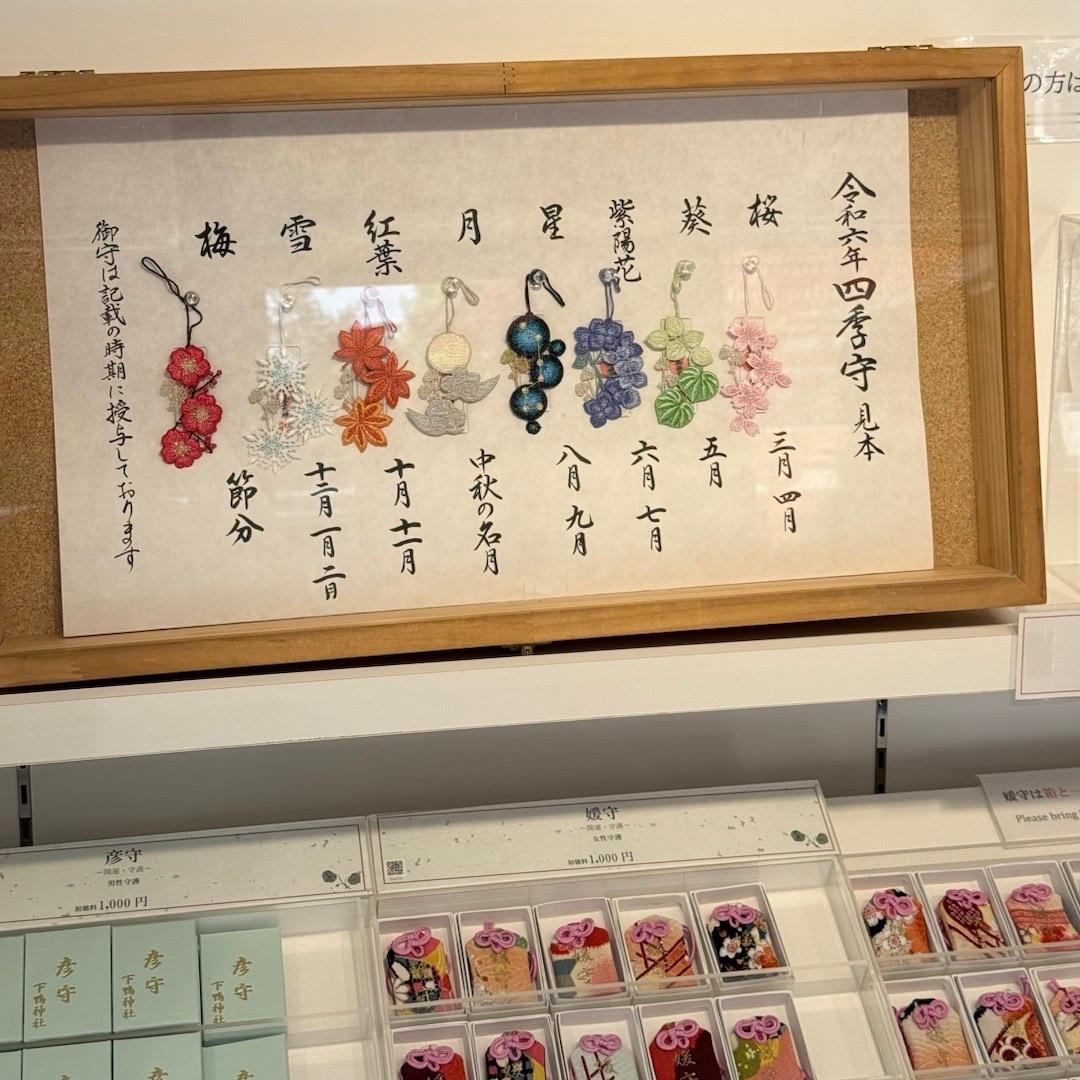 令和六年 四季守 見本
桜
三月 四月
葵
五月
紫陽花
六月 七月
星
八月 九月
月
中秋の名月
紅葉
十月 十一月
雪
十二月 一月 二月
梅
節分
御守は記載の時期に授与しております
の方は
彦守
~開運・守護~
男性守護
初穂料1,000円
媛守
~開運・守護~
女性守護
初穂料1,000円
媛守は箱と
Please bring
彦守
下鴨神社
彦守
下鴨神社
彦守
下鴨神社